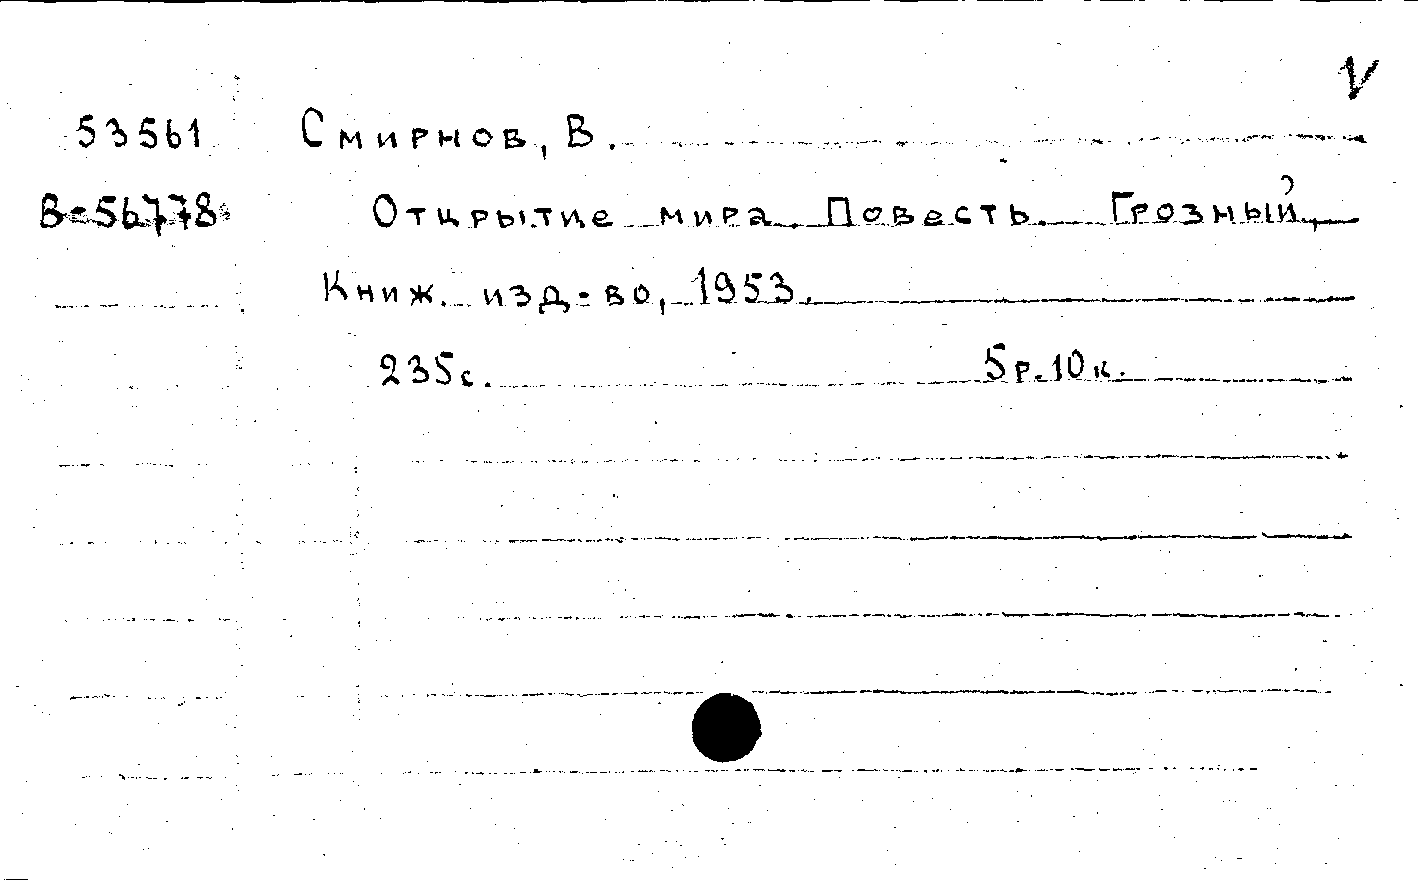 V
53561 Смирнов, В.
В-56778 Открытие мира. Повесть. Грозный,
Книж. изд-во, 1953.
235с. 5р.10к.